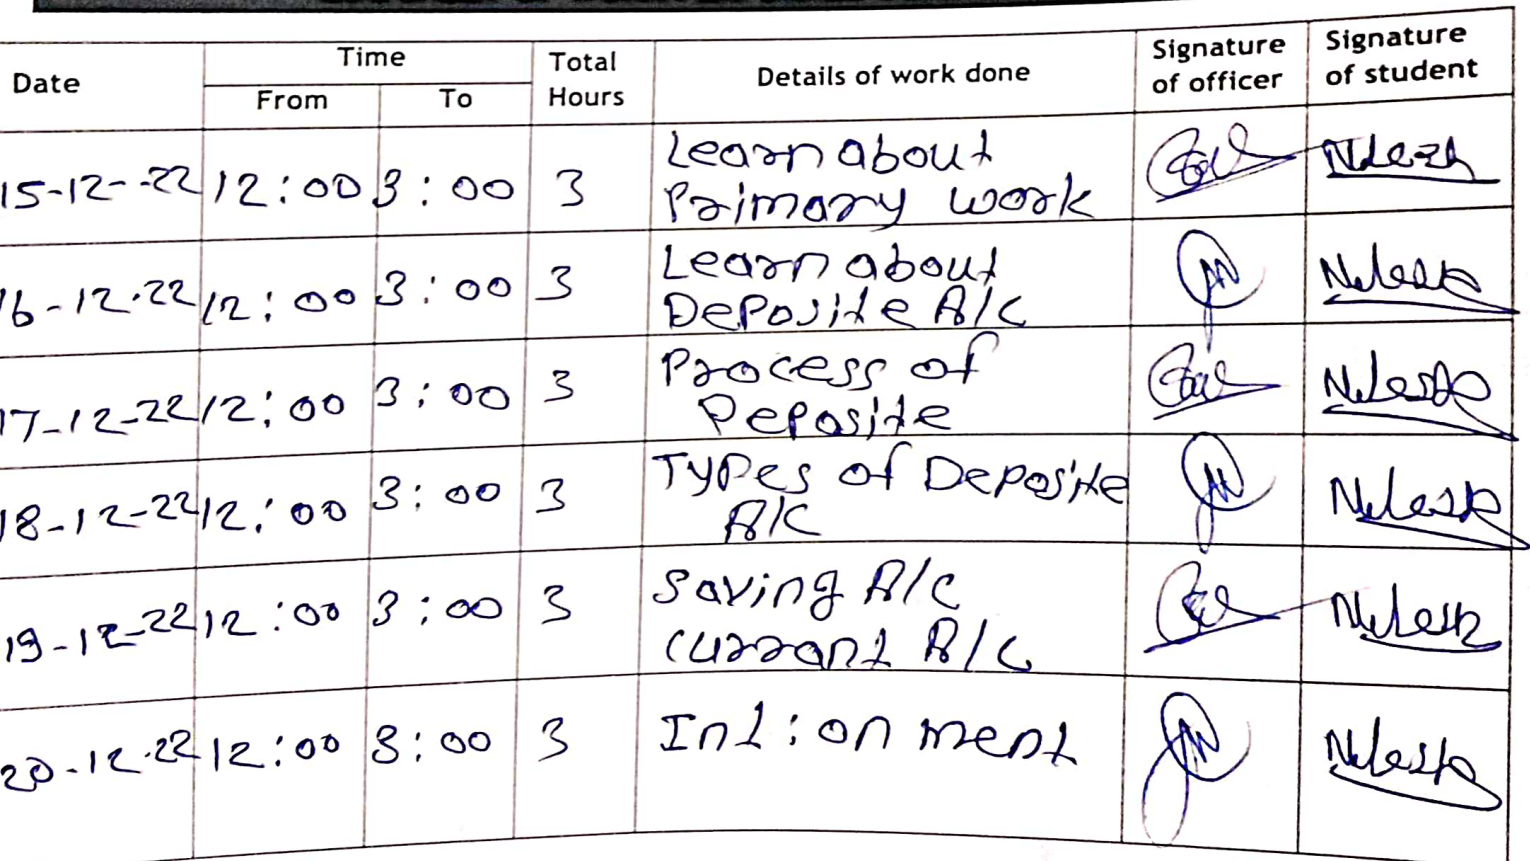 Date Time Total Hours Details of work done Signature of officer Signature of student
From To
15-12-22 12:00 3:00 3 Learn about
Primary work Nilesh
16-12-22 12:00 3:00 3 Learn about
Deposite A/c Nilesh
17-12-22 12:00 3:00 3 Process of
Deposite Nilesh
18-12-22 12:00 3:00 3 Types of Deposite
A/c Nilesh
19-12-22 12:00 3:00 3 Saving A/c
Currant A/c Nilesh
20-12-22 12:00 3:00 3 Int: on ment Nilesh